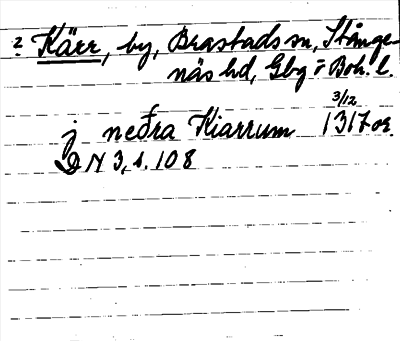 ? Kärr, by, Brastads sn, Stånge-
näs hd, Gbg o Boh. l.
3/12
j neđra Kiarrum 1317 or.
DN 3, s. 108